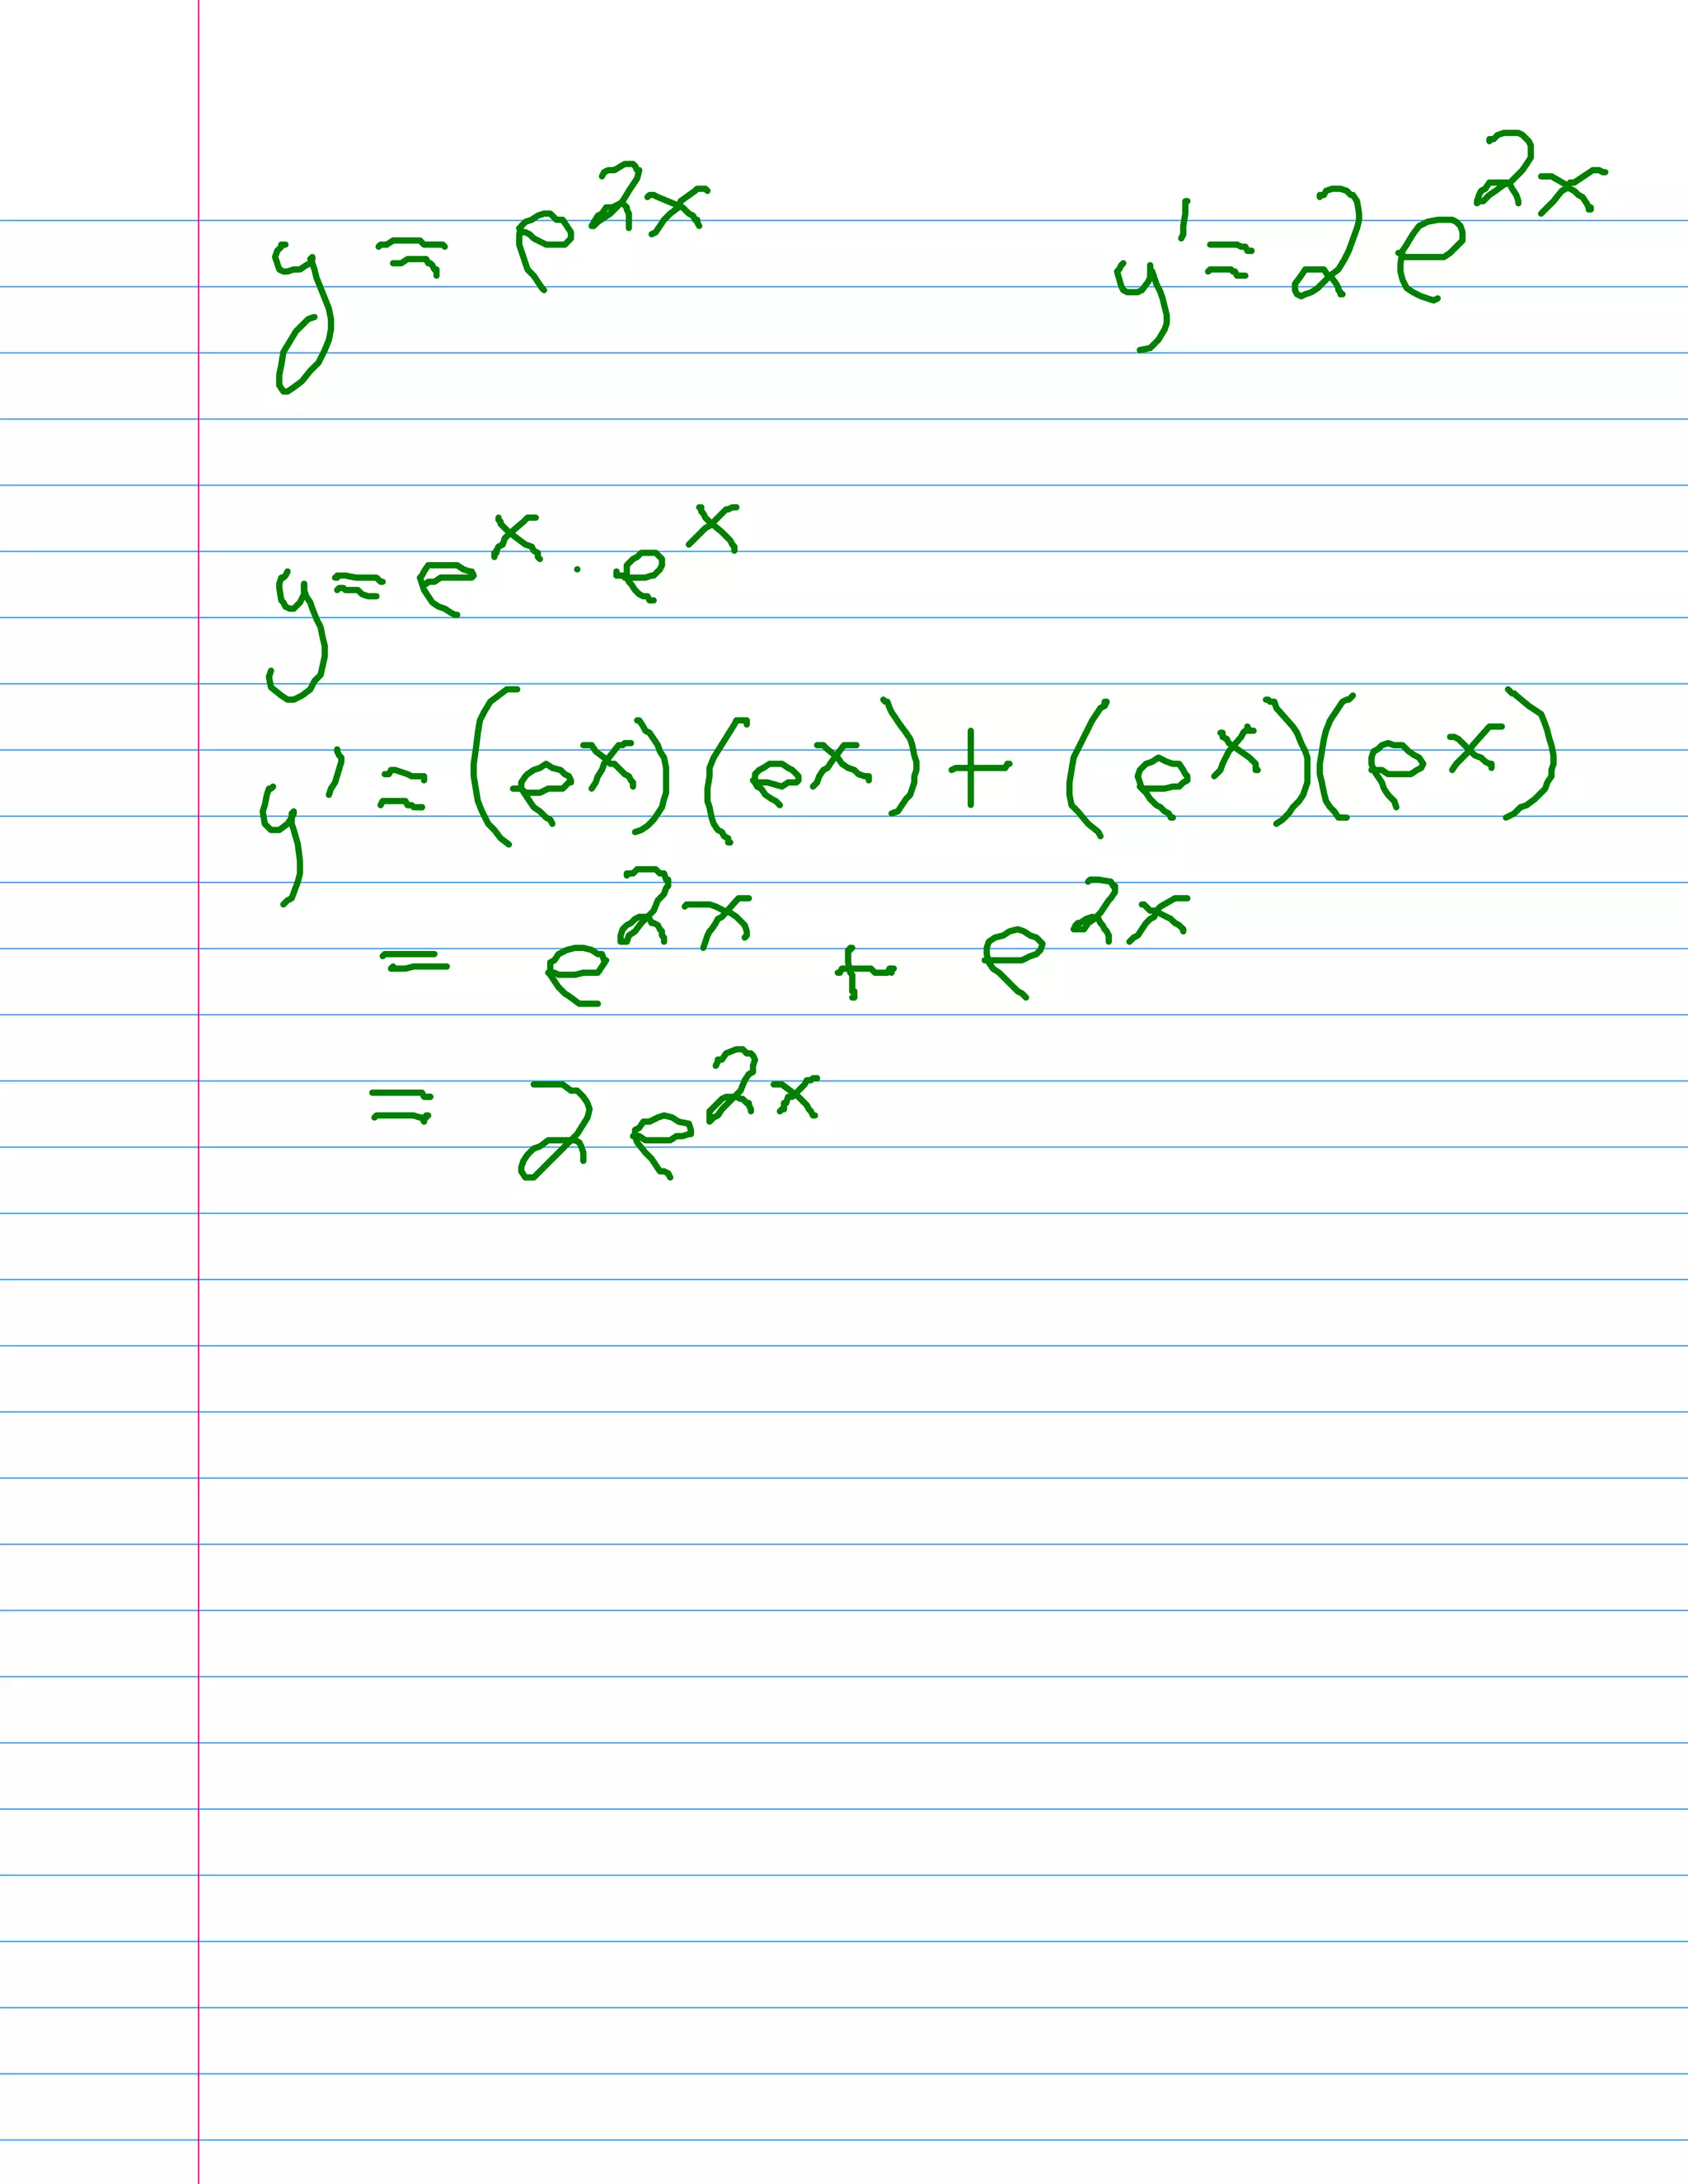 y = e^{2x} y' = 2e^{2x}
y = e^x · e^x
y' = (e^x)(e^x) + (e^x)(e^x)
= e^{2x} + e^{2x}
= 2e^{2x}